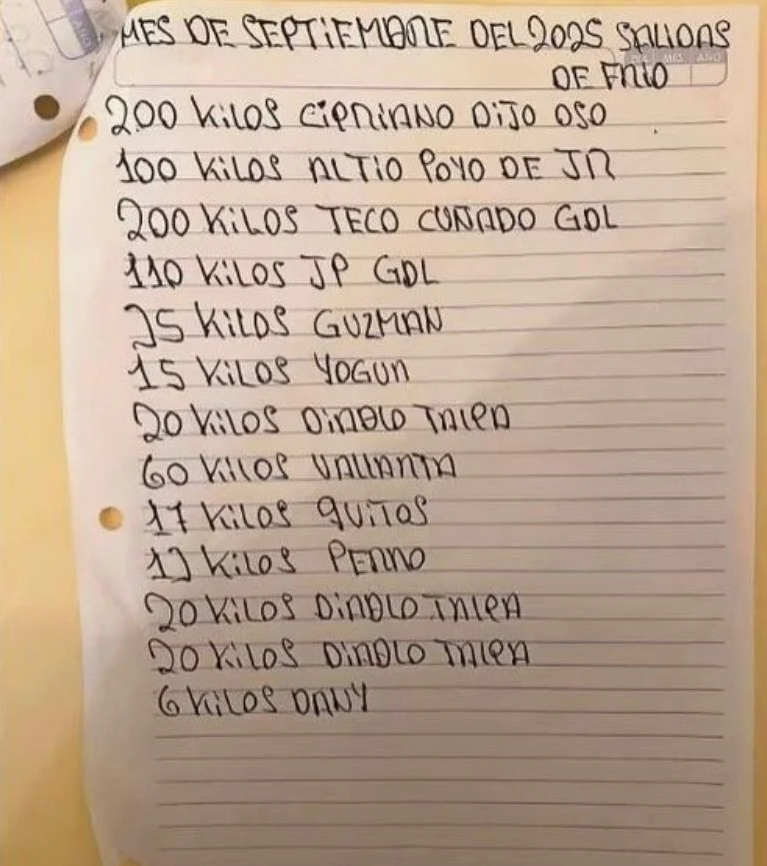 MES DE SEPTIEMBRE DEL 2025 SALIDAS
DIA MES AÑO
DE FRIO
200 KILOS CIPRIANO DIJO OSO
100 KILOS ALTIO POYO DE JR
200 KILOS TECO CUÑADO GDL
110 KILOS JP GDL
35 KILOS GUZMAN
15 KILOS YOGUR
20 KILOS DIABLO TALPA
60 KILOS VALLARTA
17 KILOS QUITOS
13 KILOS PERRO
20 KILOS DIABLO TALPA
20 KILOS DIABLO TALPA
6 KILOS DANY